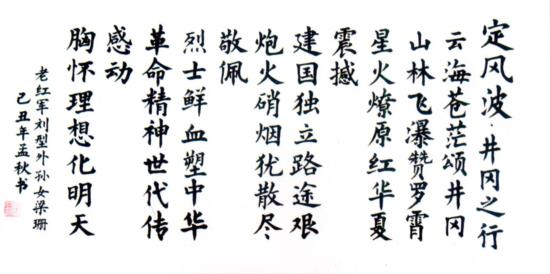 定风波·井冈之行
云海苍茫颂井冈
山林飞瀑赞罗霄
星火燎原红华夏
震撼
建国独立路途艰
炮火硝烟犹散尽
敬佩
烈士鲜血塑中华
革命精神世代传
感动
胸怀理想化明天
老红军刘型外孙女梁珊
己丑年孟秋书